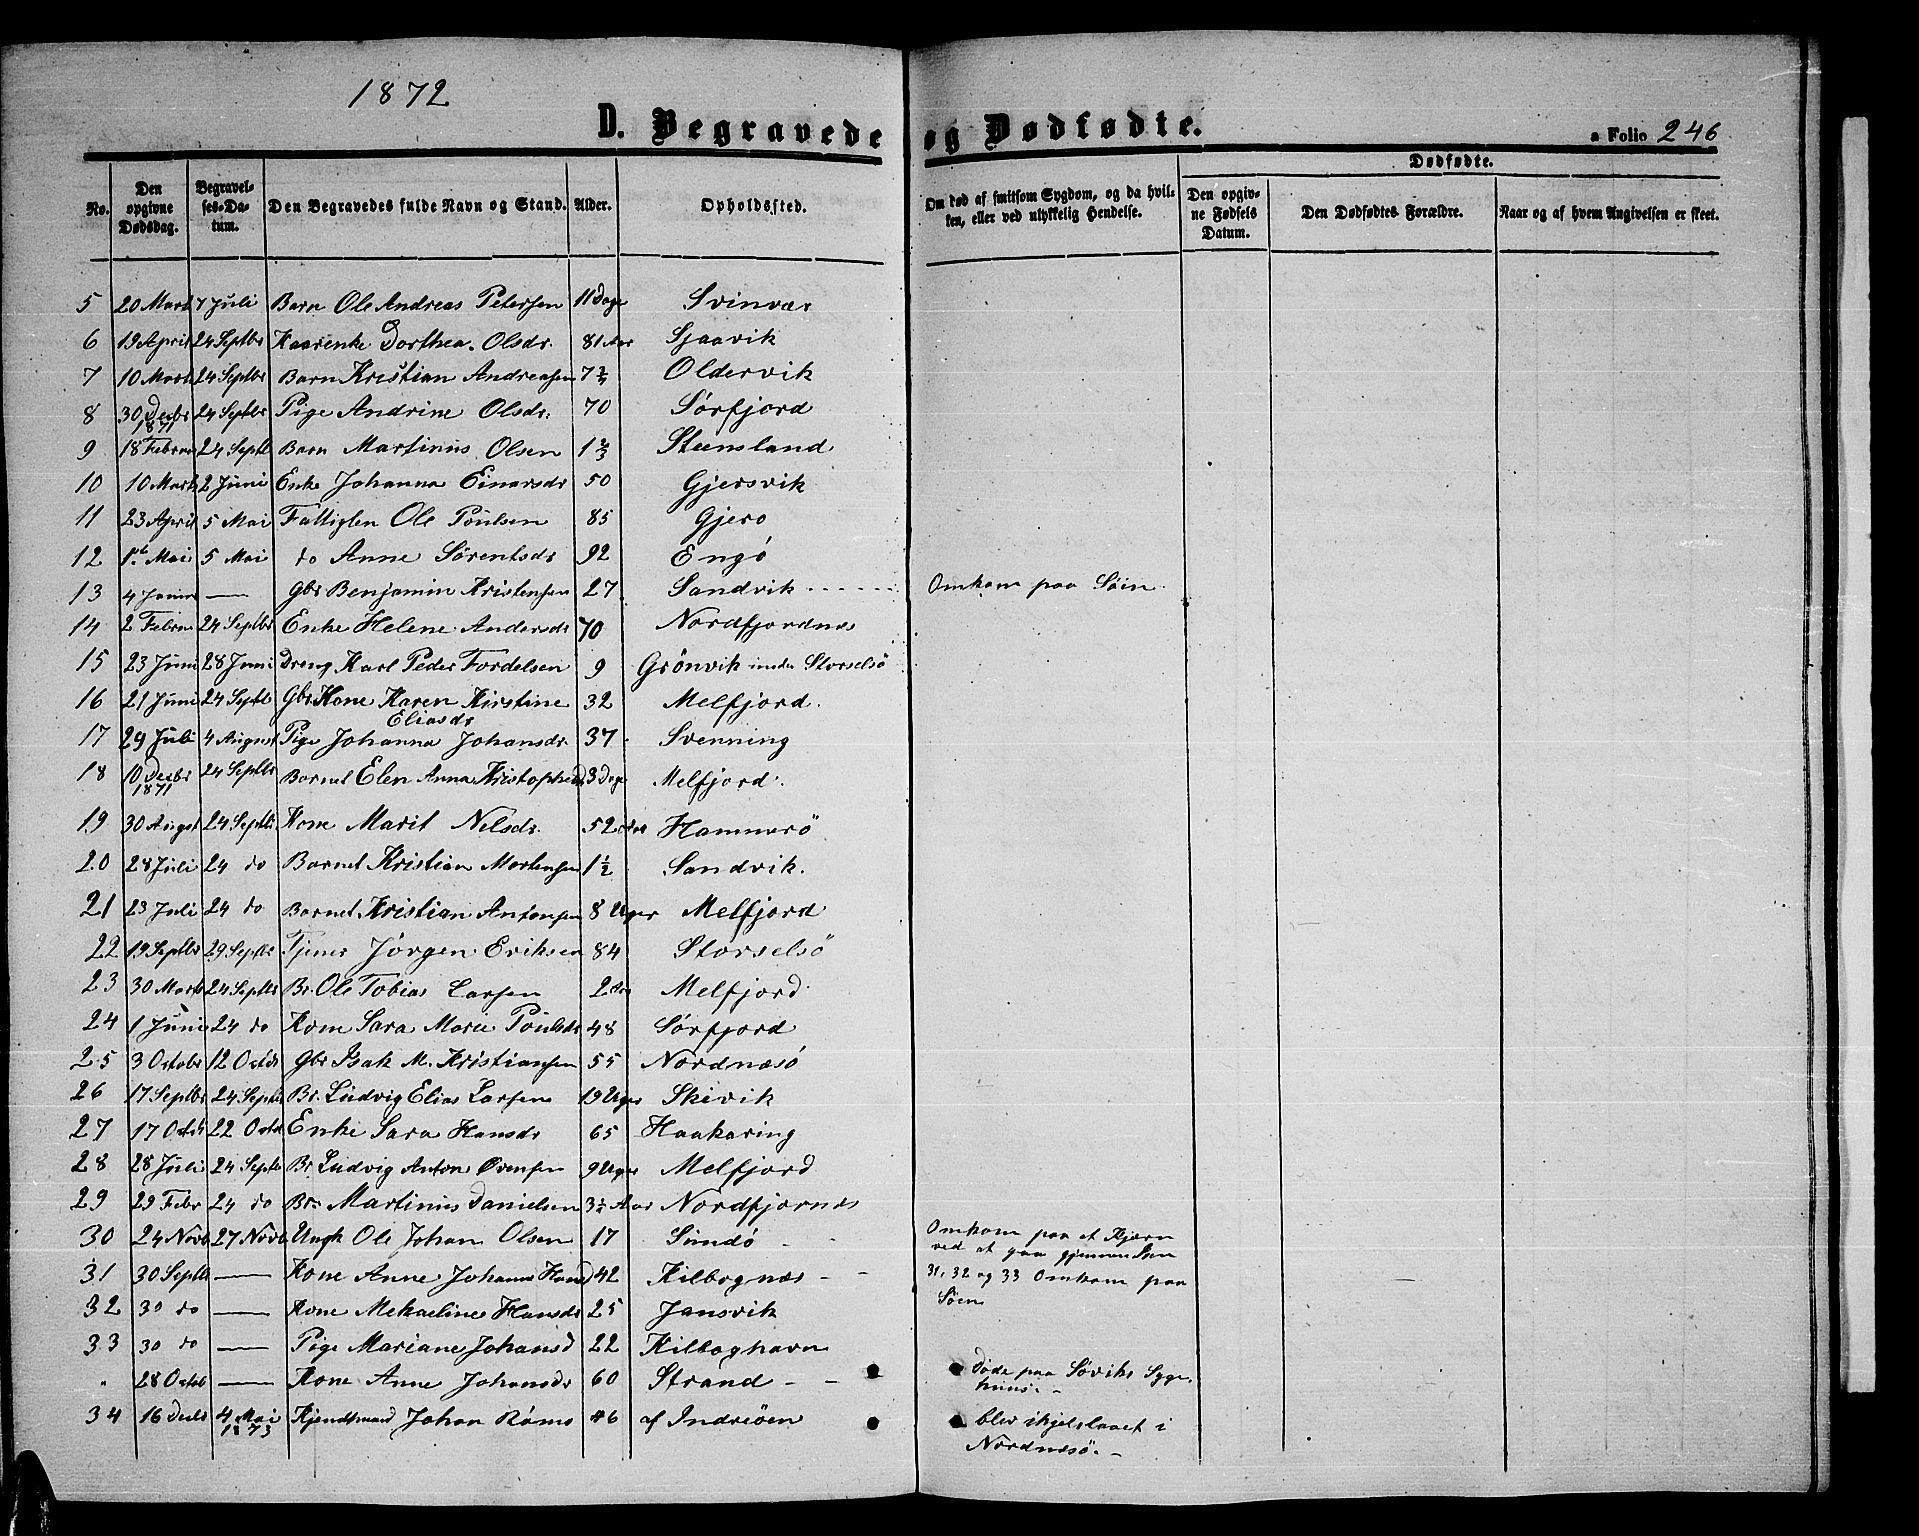 1872
D. Begravede og Dødfødte.
a Folio 246
Dødfødte.
No. Den opgivne Dødsdag. Begravelses-Datum. Den Begravedes fulde Navn og Stand. Alder. Opholdssted. Om død af smitsom Sygdom, og da hvilken, eller ved ulykkelig Hendelse. Den opgivne Fødsels Datum. Den Dødfødtes Forældre. Naar og af hvem Angivelsen er skeet.
5 20 Marts 7 Juli Barn Ole Andreas Petersen 11 Dage Svinvær
6 19 April 24 Septbr Kaarenke Dorthea Olsdr. 81 Aar Sjaavik
7 10 Marts 24 Septbr Barn Kristian Andreasen 7 Oldervik
8 30 Decbr 1871 24 Septbr Pige Andrine Olsdr. 70 Sörfjord
9 18 Februar 24 Septb Barn Martinus Olsen 1 2/3 Steensland
10 10 Marts 2 Juni Enke Johanna Einarsdr 50 Gjersvik
11 23 April 5 Mai Fattiglem Ole Poulsen 85 Gjerø
12 1ste Mai 5 Mai do Anne Sörentsdr 92 Engö
13 4 Januar — Gbr Benjamin Kristensen 27 Sandvik Omkom paa Söen
14 2 Februar 24 Septbr Enke Helene Andersdr 70 Nordfjordnæs
15 23 Juni 28 Juni Dreng Karl Peder Fordelsen 9 Grönvik indre Storselsö
16 21 Juni 24 Septb Gbr. Kone Karen Kirstine Eliasdr 32 Melfjord.
17 29 Juli 4 August Pige Johanna Johansdr. 37 Svenning
18 10 Decbr 1871 24 Septbr Barnet Elen Anna Kristophersd 3 Dage Melfjord.
19 30 August 24 Septb Kone Marit Nelsdr. 52 Aar Hammerö
20 28 Juli 24 do Barnet Kristian Mortensen 1 1/2 Sandvik.
21 23 Juli 24 do Barnet Kristian Antonsen 8 Uger Melfjord
22 19 Septbr 29 Septbr Tjener Jörgen Eriksen 84 Storselsö
23 30 Marts 24 Septbr Br. Ole Tobias Larsen 2 Aar Melfjord
24 1 Juni 24 do Kone Sara Marie Poulsdr 48 Sörfjord
25 3 Octobr 12 Octbr Gbr Isak M. Kristiansen 55 Nordnæsö
26 17 Septbr 24 Septb Br. Ludvig Elias Larsen 19 Uger Skivik
27 17 Octb 22 Octb Enke Sara Hansdr 65 Haakaring
28 28 Juli 24 Septb Br Ludvig Anton Ovensen 9 Uger Melfjord
29 29 Febr 24 do Br. Martinus Danielsen 3 1/2 Aar Nordfjornæs
30 24 Novb 27 Novb Ungk Ole Johan Olsen 17 Sundö Omkom paa et Kjærn ved at gaa gjennem Isen
31 30 Septb — Kone Anne Johanna Hansd 42 Kilbognæs 31, 32 og 33 Omkom paa Söen
32 30 do — Kone Mekaeline Hansdr 25 Jansvik
33 30 do — Pige Mariane Johansd 22 Kilboghavn
" 28 Octob — Kone Anne Johansdr 60 Strand döde paa Søviks Sygehuus.
34 16 Decbr 4 Mai 1873 Kjendtmand Johan Römo 46 af Inderöen blev ihjelslaaet i Nordnæsö.